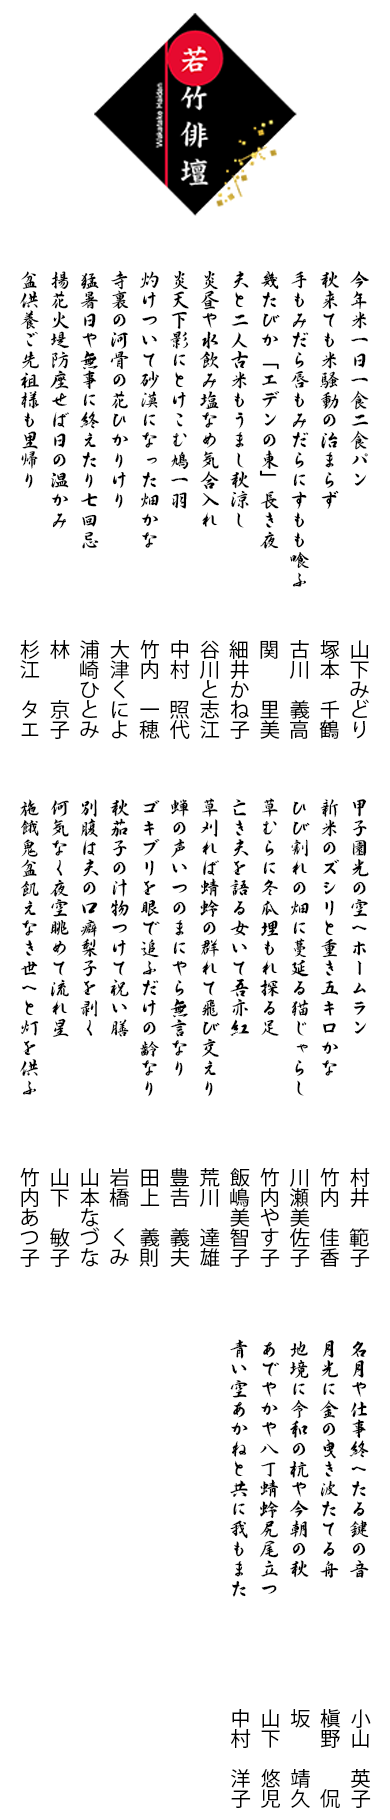 若竹俳壇
Wakatake Haidan
今年米一日一食二食パン
山下みどり
秋来ても米騒動の治まらず
塚本 千鶴
手もみだら唇もみだらにすもも喰ふ
古川 義高
幾たびか「エデンの東」長き夜
関 里美
夫と二人古米もうまし秋涼し
細井かね子
炎昼や水飲み塩なめ気合入れ
谷川と志江
炎天下影にとけこむ鳩一羽
中村 照代
灼けついて砂漠になった畑かな
竹内 一穂
寺裏の河骨の花ひかりけり
大津くによ
猛暑日や無事に終えたり七回忌
浦崎ひとみ
揚花火堤防座せば日の温かみ
林 京子
盆供養ご先祖様も里帰り
杉江 タエ
甲子園光の空へホームラン
村井 範子
新米のズシリと重き五キロかな
竹内 佳香
ひび割れの畑に蔓延る猫じゃらし
川瀬美佐子
草むらに冬瓜埋もれ探る足
竹内やす子
亡き夫を語る女いて吾亦紅
飯嶋美智子
草刈れば蜻蛉の群れて飛び交えり
荒川 達雄
蝉の声いつのまにやら無言なり
豊吉 義夫
ゴキブリを眼で追ふだけの齢なり
田上 義則
秋茄子の汁物つけて祝い膳
岩橋 くみ
別腹は夫の口癖梨子を剥く
山本なづな
何気なく夜空眺めて流れ星
山下 敏子
施餓鬼盆飢えなき世へと灯を供ふ
竹内あつ子
名月や仕事終へたる鍵の音
小山 英子
月光に金の曳き波たてる舟
槇野 侃
地境に令和の杭や今朝の秋
坂 靖久
あでやかや八丁蜻蛉尻尾立つ
山下 悠児
青い空あかねと共に我もまた
中村 洋子